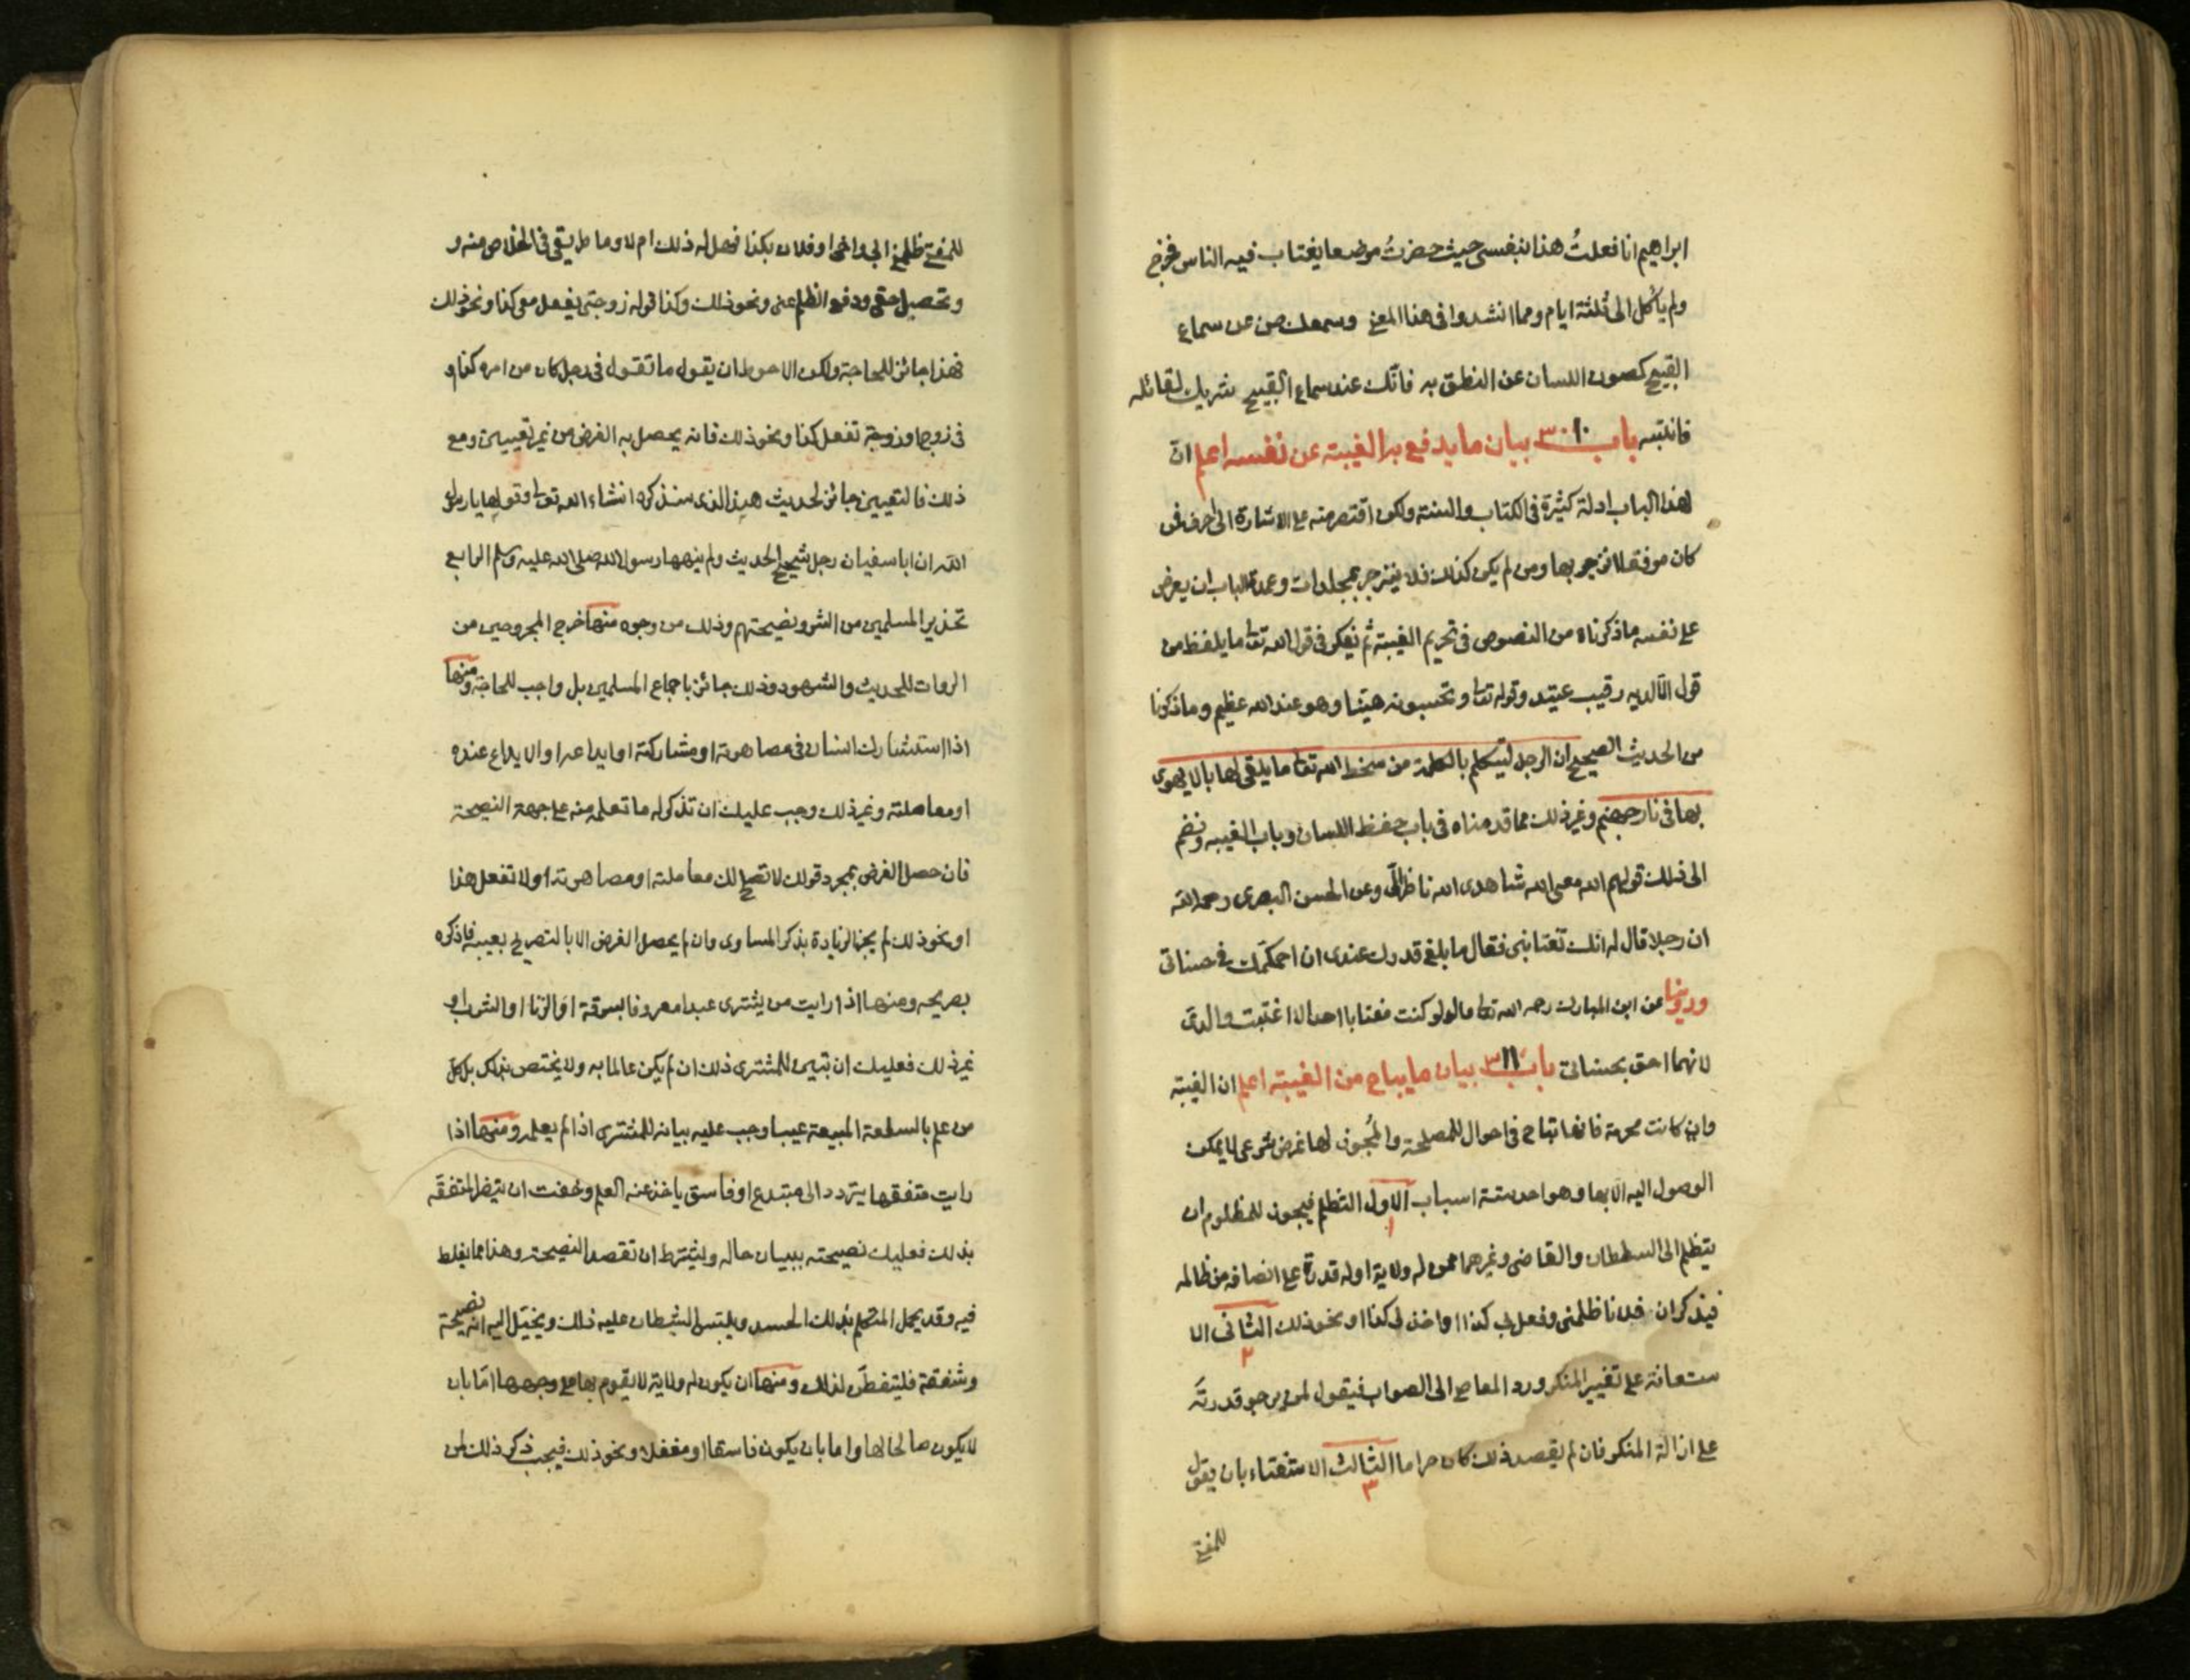 ابراهيم انا فعلتُ هذا بنفسى حيث حضرتُ موضعا يغتاب فيه الناس فخرج
ولم يأكل الى ثلثة ايام ومما انشدوا فى هذا المعنى وسمعك صن عن سماع
القبيح كصون اللسان عن النطق به فانّك عند سماع القبيح شريك لقائله
فانتبه باب ٣١٠ بيان ما يدفع به الغيبة عن نفسه اعلم انّ
لهذا الباب ادلة كثيرة فى الكتاب والسنة ولكن اقتصر منه على الاشارة الى احرف فمن
كان موفقا لانزجر بها ومن لم يكن كذلك فلا ينزجر بمجلدات وعمدة الباب ان يعرض
على نفسه ما ذكرناه من النصوص فى تحريم الغيبة ثم يفكر فى قول الله تعا ما يلفظ من
قول الّا لديه رقيب عتيد وقوله تعا وتحسبونه هينا وهو عند الله عظيم وما ذكرنا
من الحديث الصحيح ان الرجل ليتكلم بالكلمة من سخط الله تعا ما يلقى لها بالا يهوى
بها فى نار جهنم وغير ذلك مما قدمناه فى باب حفظ اللسان وباب الغيبه ونضم
الى ذلك قولهم الله معى الله شاهدى الله ناظر الىّ وعن الحسن البصرى رحمه الله
ان رجلا قال له انك تغتابنى فقال ما بلغ قدرك عندى ان احكمّك فى حسناتى
وروينا عن ابن المبارك رحمه الله تعا قال لو كنت مغتابا احدا لاغتبت والدىّ
لانهما احق بحسناتى باب ٣١١ بيان ما يباح من الغيبة اعلم ان الغيبة
وان كانت محرمة فانها تباح فى احوال للمصلحة والمُجوز لها غرض شرعى لا يمكن
الوصول اليه الا بها وهو احد ستة اسباب الاول التظلم فيجوز للمظلوم ان
١
يتظلم الى السلطان والقاضى وغيرهما ممن له ولاية او له قدرة على انصافه من ظالمه
فيذكر ان فلانا ظلمنى وفعل بى كذا او اخذ لى كذا او نحو ذلك الثانى الا
٢
ستعانة على تغيير المنكر ورد المعاصى الى الصواب فيقول لمن يرجو قدرته
على ازالة المنكر فان لم يقصد ذلك كان حراما الثالث الاستفتاء بان يقول
٣
للمفتى
للمفتى ظلمنى ابى او اخى او فلان بكذا فهل له ذلك ام لا وما طريقى فى الخلاص منه و
وتحصيل حقى ودفع الظلم عنى ونحو ذلك وكذا قوله زوجتى يفعل معى كذا ونحو ذلك
فهذا جائز للحاجة ولكن الاحوط ان يقول ما تقول فى رجل كان من امره كذا او
فى زوج او زوجة تفعل كذا ونحو ذلك فانه يحصل به الغرض من غير تعيين ومع
ذلك فالتعيين جائز لحديث هند الذى سنذكره انشاء الله تعا وقولها يا رسول
الله ان ابا سفيان رجل شحيح الحديث ولم ينهها رسول الله صلى الله عليه وسلم الرابع
تحذير المسلمين من الشر ونصيحتهم وذلك من وجوه منها خرج المجروحين من
الروات للحديث والشهود وذلك جائز باجماع المسلمين بل واجب للحاجة ومنها
اذا استشارك انسان فى مصاهرته او مشاركته او ايداعه او الايداع عنده
او معاملته وغير ذلك وجب عليك ان تذكر له ما تعلمه منه على جهة النصيحة
فان حصل الغرض بمجرد قولك لا تصلح لك معاملته او مصاهرته او لا تفعل هذا
او نحو ذلك لم يجز الزيادة بذكر المساوى وان لم يحصل الغرض الا بالتصريح بعيبه فاذكره
بصريحه ومنها اذا رايت من يشترى عبدا معروفا بسرقة او الزنا او الشرب او
غير ذلك فعليك ان تبين للمشترى ذلك ان لم يكن عالما به ولا يختص بذلك بل كل
من علم بالسلعة المبيعة عيبا وجب عليه بيانه للمشترى اذا لم يعلمه ومنها اذا
رايت متفقها يتردد الى مبتدع او فاسق ياخذ عنه العلم وخفت ان يتضر المتفقّه
بذلك فعليك نصيحته ببيان حاله وليشترط ان تقصد النصيحة وهذا مما يغلط
فيه وقد يحمل المتكلم بذلك الحسد ويلبتس الشيطان عليه ذلك ويخيّل اليه انه نصيحة
وشفقة فليتفطّن لذلك ومنها ان يكون له ولاية لا يقوم بها على وجهها امّا بان
لا يكون صالحا لها واما بان يكون فاسقا او مغفلا ونحو ذلك فيجب ذكر ذلك لمن